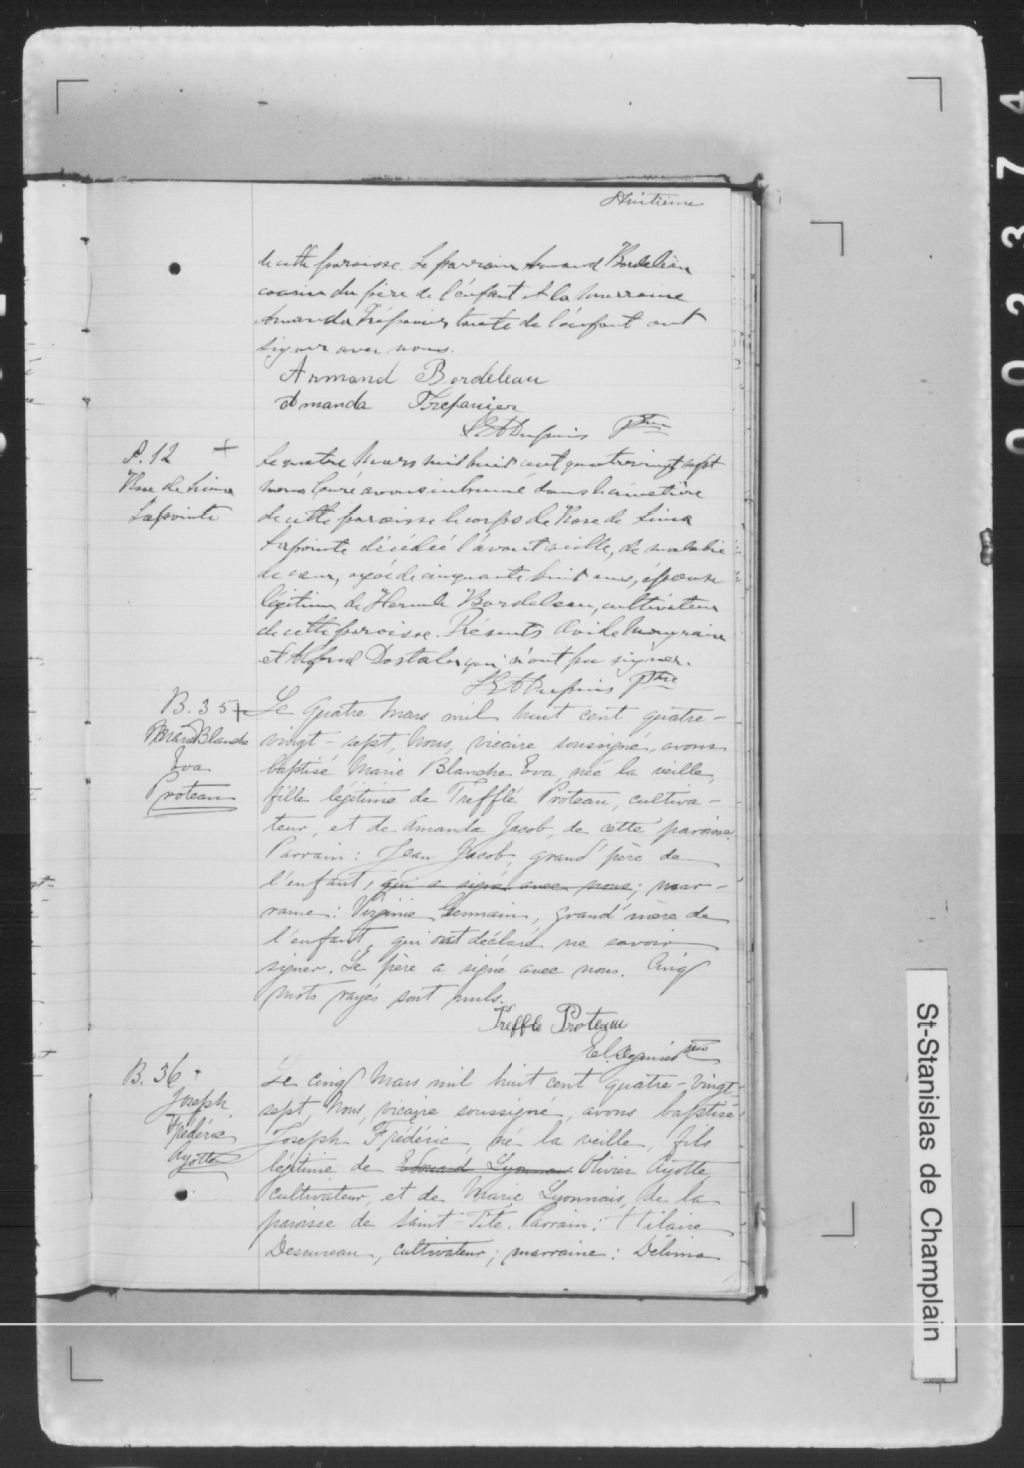 Huitième
de cette paroisse. Le parrain Armand Bordeleau
cousin du père de l'enfant et la marraine
Amanda Trépanier tante de l'enfant ont
signer avec nous.
Armand Bordeleau
Amanda Trepanier
Ptre
S. 12 +
Rose de Lima
Lapointe
Le quatre Mars mil huit cent quatre vingt sept
nous Curé avons inhumé dans le cimetière
de cette paroisse le corps de Rose de Lima
Lapointe décédée l'avant veille, de maladie
de cœur, agée de cinquante huit ans, épouse
légitime de Bordeleau, cultivateur
de cette paroisse. Présents Ovide Mongrain
et Alfred Dostaler qui n'ont pu signer.
Ptre
B. 35 +
Marie Blanche
Eva
Proteau
Le quatre Mars mil huit cent quatre-
vingt-sept, Nous, vicaire soussigné, avons
baptisé Marie Blanche Eva, née la veille,
fille légitime de Trefflé Proteau, cultiva-
teur, et de Amanda Jacob, de cette paroisse.
Parrain: Jean Jacob, grand'père de
l'enfant, qui a signé avec nous; mar-
raine: Virginie Germain, grand'mère de
l'enfant, qui ont déclaré ne savoir
signer. Le père a signé avec nous. Cinq
mots rayés sont nuls.
Treffle Proteau
B. 36
Joseph
Frédéric
Ayotte
Le cinq Mars mil huit cent quatre-vingt-
sept, Nous, vicaire soussigné, avons baptisé
Joseph Frédéric, né la veille, fils
légitime de Edouard Lyonnais Olivier Ayotte,
cultivateur, et de Marie Lyonnais, de la
paroisse de Saint-Tite. Parrain: Hilaire
Desureau, cultivateur; marraine: Délima
St-Stanislas de Champlain
002374